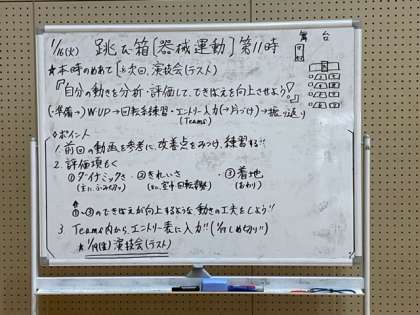 1/16(火) 跳び箱[器械運動]第11時
舞台
★本時のめあて[次回、演技会(テスト)
『自分の動きを分析・評価して、できばえを向上させよう』
(・準備→)W.UP→回転系練習・エントリー入力(→片づけ)→振り返り
(Teams)
◇ポイント
1. 前回の動画を参考に、改善点をみつけ、練習する!!
2. 評価項もく
①ダイナミックさ ・②きれいさ ・③着地
(主に、ふみ切り) (主に、空中回転姿勢) (おわり)
①~③のできばえが向上するような動きの工夫をしよう!!
3. Teams内から、エントリー表に入力!!
★1/19(金)演技会(テスト)